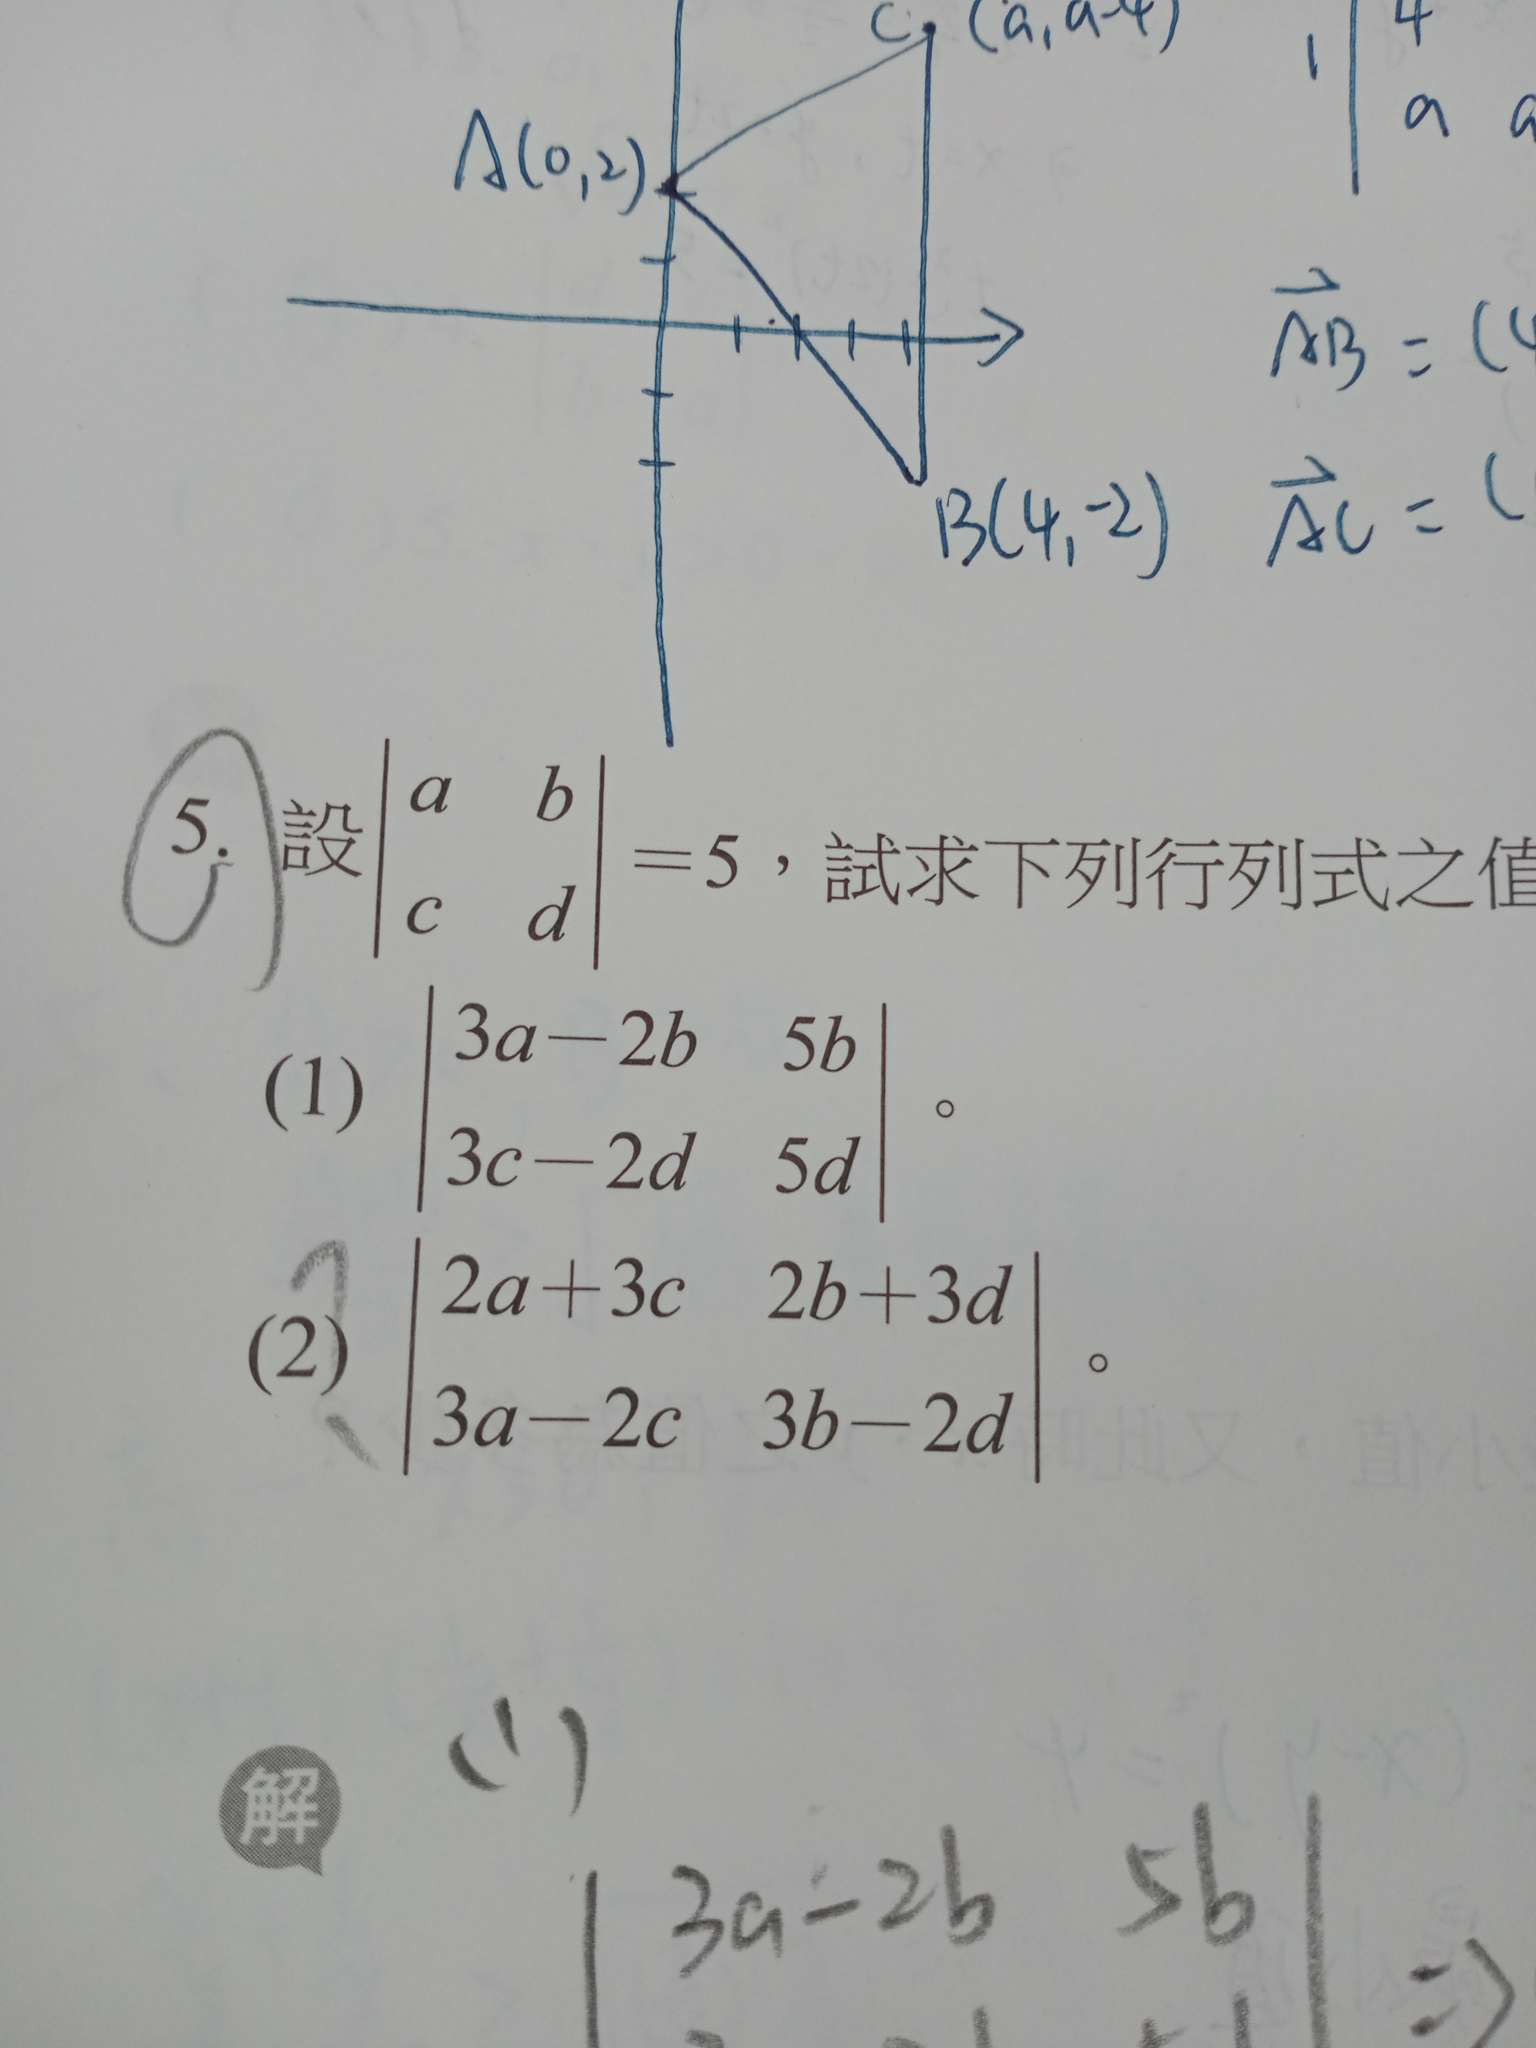 C (a, a-4)
4
a a
A(0,2)
AB = (4
B(4,-2)
AC = (
5. 設 | a b | =5，試求下列行列式之值
| c d |
(1) | 3a－2b 5b | 。
| 3c－2d 5d |
(2) | 2a＋3c 2b＋3d | 。
| 3a－2c 3b－2d |
?
解
(1)
| 3a-2b 5b | =>